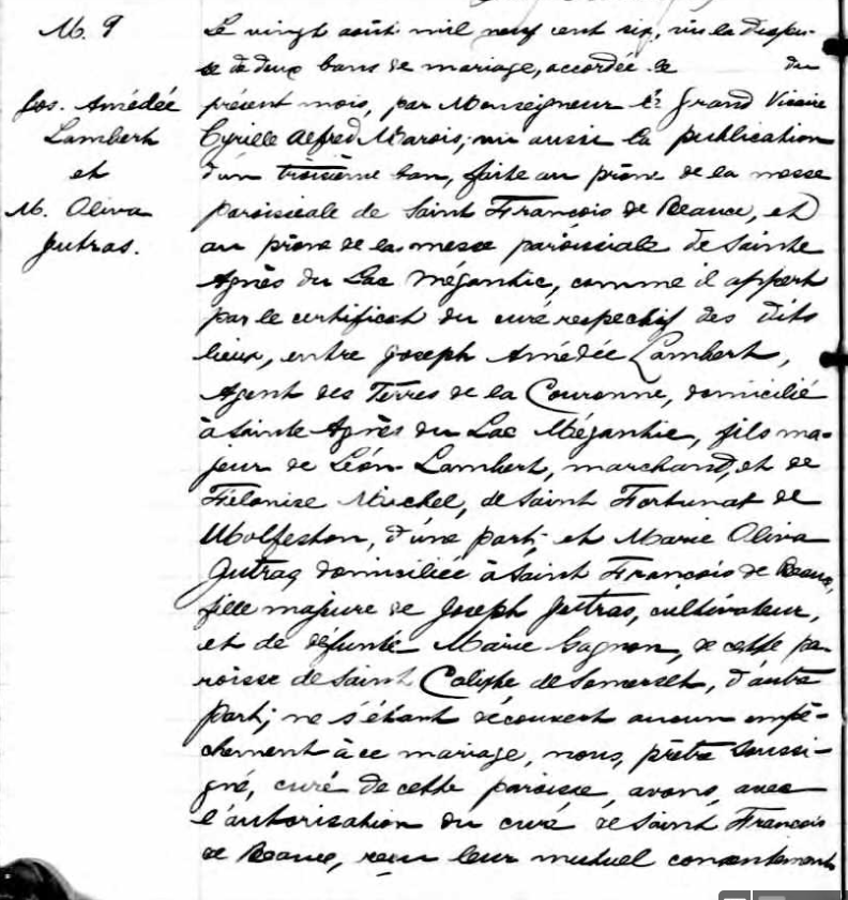 M. 9
Jos. Amédée
Lambert
et
M. Oliva
Jutras.
Le vingt août mil neuf cent six, vu la dispen-
se de deux bans de mariage, accordée le du
présent mois, par Monseigneur le Grand Vicaire
Cyrille Alfred Marois; vu aussi la publication
d'un troisième ban, faite au prône de la messe
paroissiale de Saint François de Beauce, et
au prône de la messe paroissiale de Sainte
Agnès du Lac Mégantic, comme il appert
par le certificat du curé respectif des dits
lieux, entre Joseph Amédée Lambert,
Agent des Terres de la Couronne, domicilié
à Sainte Agnès du Lac Mégantic, fils ma-
jeur de Léon Lambert, marchand, et de
Félonise Michel, de Saint Fortunat de
Wolfeston, d'une part; et Marie Oliva
Jutras domiciliée à Saint François de Beauce,
fille majeure de Joseph Jutras, cultivateur,
et de défunte Marie Gagnon, de cette pa-
roisse de Saint Calixte de Somerset, d'autre
part; ne s'étant découvert aucun empê-
chement à ce mariage, nous, prêtre soussi-
gné, curé de cette paroisse, avons, avec
l'autorisation du curé de Saint François
de Beauce, reçu leur mutuel consentement